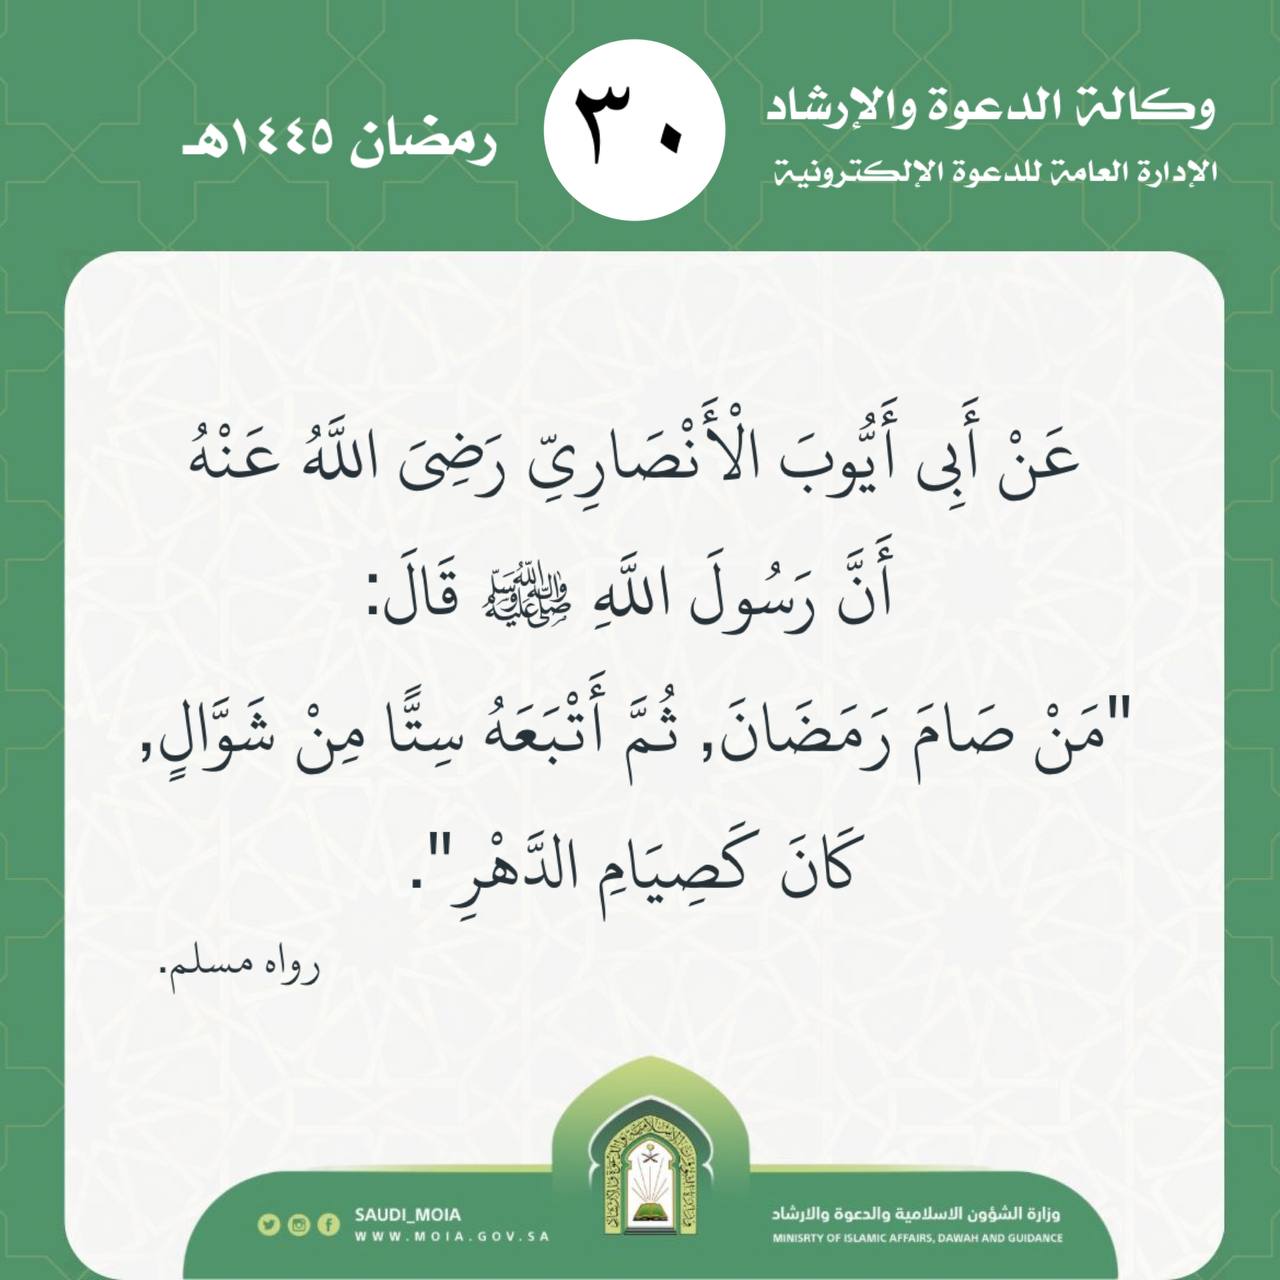 وكالة الدعوة والإرشاد
الإدارة العامة للدعوة الإلكترونية
٣٠
رمضان ١٤٤٥هـ
عَنْ أَبِي أَيُّوبَ الْأَنْصَارِيِّ رَضِيَ اللَّهُ عَنْهُ
أَنَّ رَسُولَ اللَّهِ ﷺ قَالَ:
"مَنْ صَامَ رَمَضَانَ, ثُمَّ أَتْبَعَهُ سِتًّا مِنْ شَوَّالٍ,
كَانَ كَصِيَامِ الدَّهْرِ".
رواه مسلم.
وزارة الشؤون الاسلامية والدعوة والارشاد
MINISRTY OF ISLAMIC AFFAIRS, DAWAH AND GUIDANCE
SAUDI_MOIA
WWW.MOIA.GOV.SA